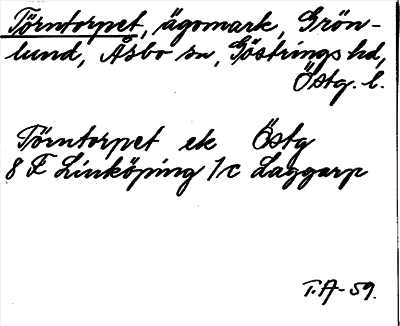 Törntorpet, ägomark, Grön-
lund, Åsbo sn, Göstrings hd,
Östg. l.
Törntorpet ek Östg
8 F Linköping 1/c Laggarp
T.A-59.